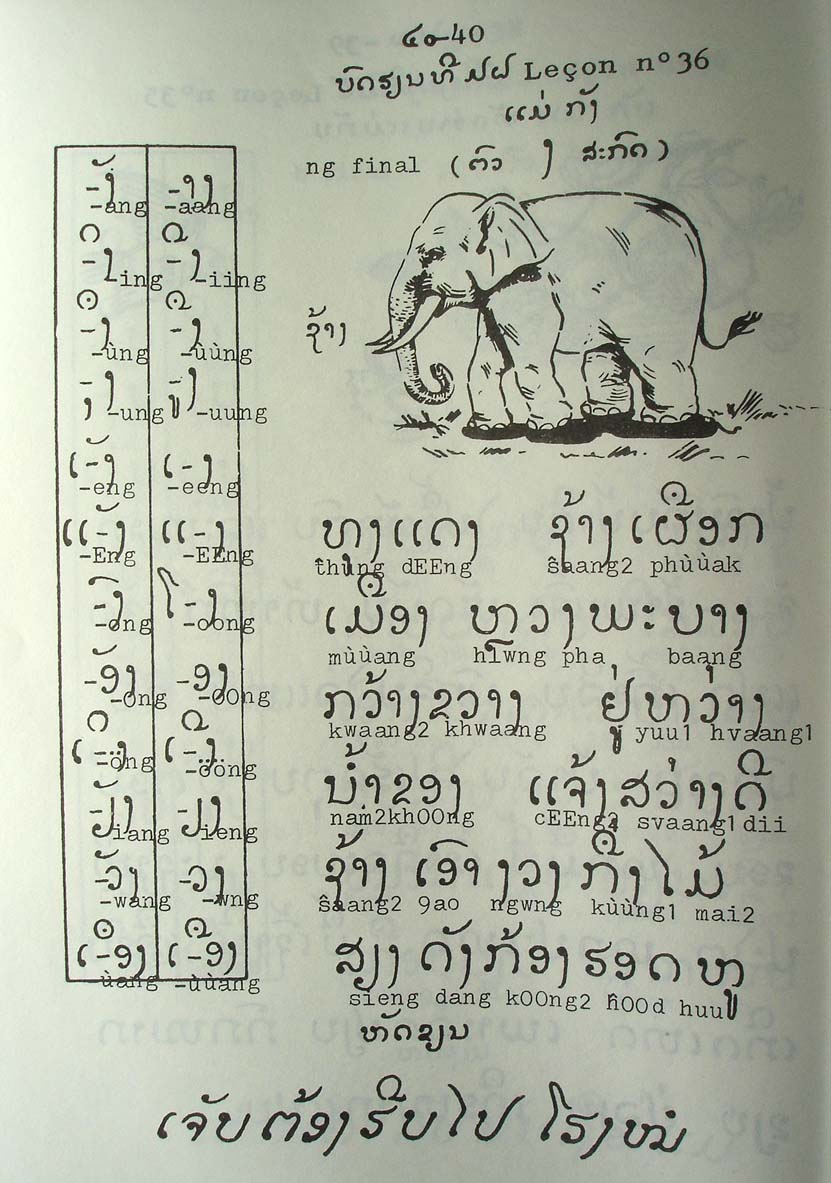 ໔໐-40
ບົດຮຽນທີ ໓໖ Leçon nº36
ແມ່ ກັງ
ng final ( ຕົວ ງ ສະກົດ )
-ັງ -ang -າງ -aang
-ິງ -ing -ີງ -iing
-ຶງ -ùng -ືງ -ùùng
-ຸງ -ung -ູງ -uung
ເ-ັງ -eng ເ-ງ -eeng
ແ-ັງ -Eng ແ-ງ -EEng
-ົງ -ong ໂ-ງ -oong
-ັອງ -Ong -ອງ -OOng
ເ-ິງ -öng ເ-ີງ -ööng
-ັຽງ -iang -ຽງ -ieng
-ັວງ -wang -ວງ -wng
ເ-ຶອງ -ùang ເ-ືອງ -ùùang
ຊ້າງ
ທຸງແດງ ຊ້າງເຜືອກ
thung dEEng saang2 phùùak
ເມືອງ ຫຼວງພະບາງ
mùùang hlwng pha baang
ກວ້າງຂວາງ ຢູ່ຫວ່າງ
kwaang2 khwaang yuu1 hvaang1
ນ້ຳຂອງ ແຈ້ງສວ່າງດີ
nam2khOOng cEEng2 svaang1dii
ຊ້າງ ເອົາ ງວງ ກິ່ງໄມ້
saang2 9ao ngwng kùùng1 mai2
ສຽງ ດັງກ້ອງຮອດ ຫູ
sieng dang kOOng2 hOOd huu
ຫັດຂຽນ
ເຈັບຕ້ອງຮີບໄປ ໂຮງໝໍ